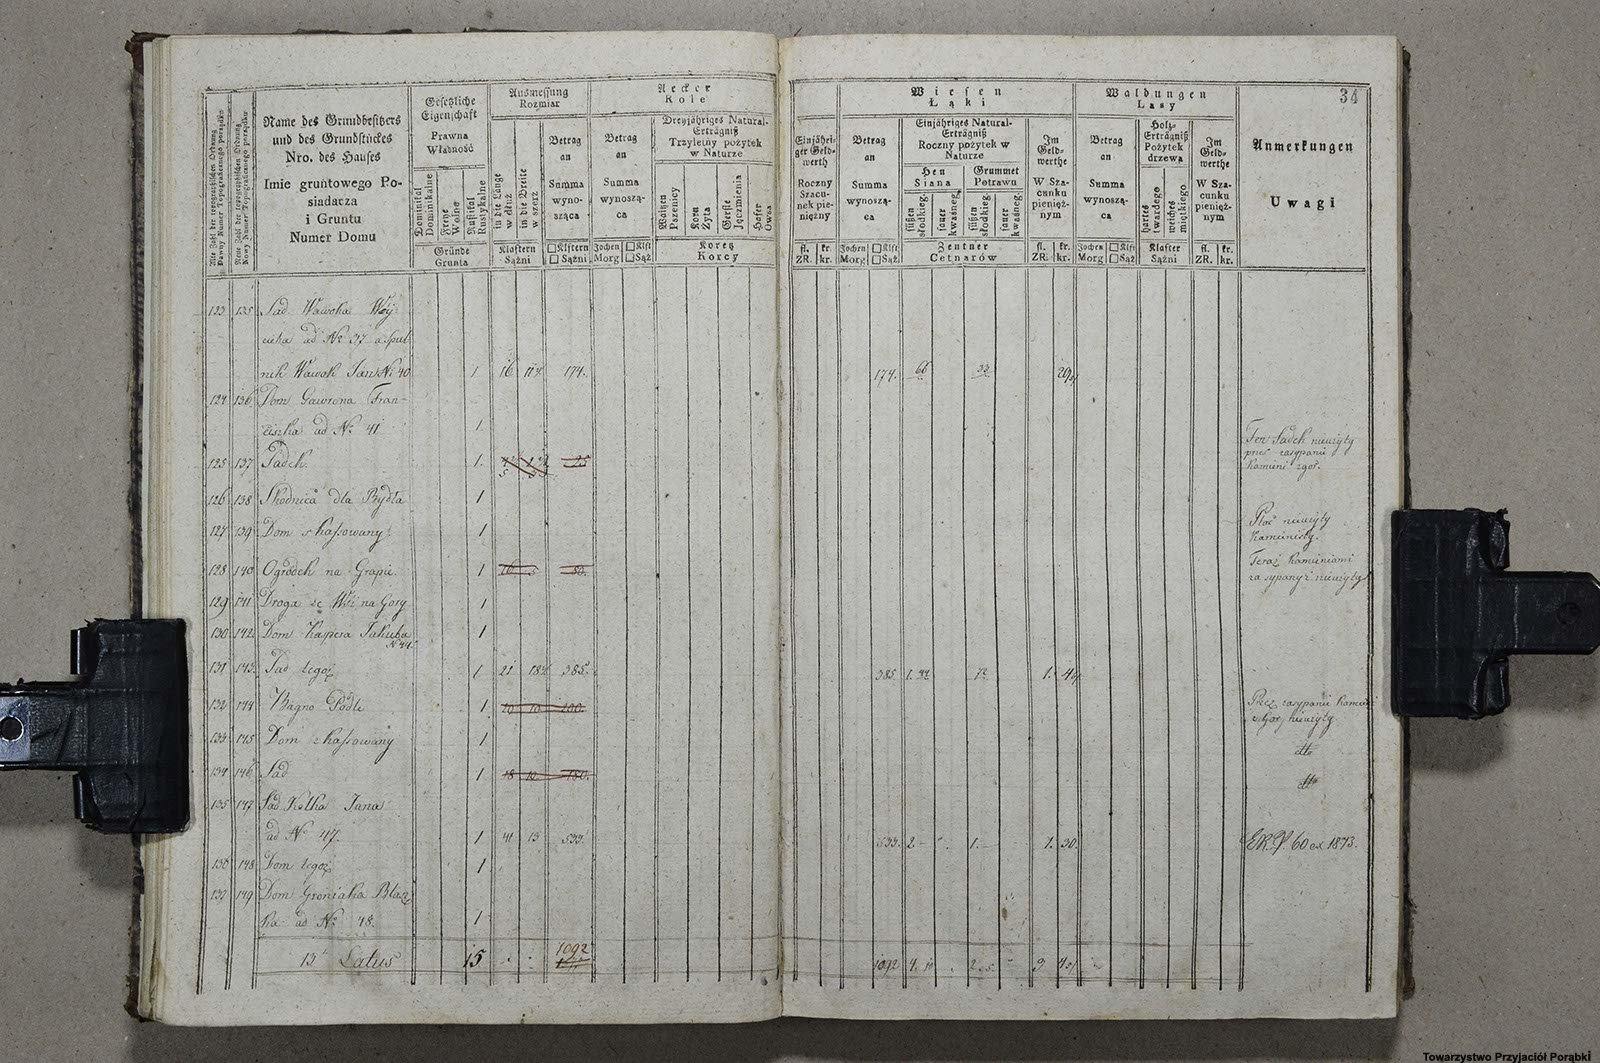 34
Alte Zahl der topographischen Ordnung
Dawny Numer Topograficznego porządku
Neue Zahl der topographischen Ordnung
Nowy Numer Topograficznego porządku
Name des Grundbesitzers
und des Grundstückes
Nro. des Hauses
Imie gruntowego Po-
siadacza
i Gruntu
Numer Domu
Gesetzliche
Eigenschaft
Prawna
Własność
Dominikal
Dominikalne
Freye
Wolne
Rustikal
Rustykalne
Gründe
Grunta
Ausmessung
Rozmiar
in die Länge
w dłuż
in die Breite
w szerz
Klaftern
Sążni
Betrag
an
Summa
wyno-
sząca
□ Klftern
□ Sążni
Aecker
Role
Betrag
an
Summa
wynoszą-
ca
Jochen □ Klft
Morg □ Sąż
Dreyjähriges Natural-
Erträgniß
Trzyletny pożytek
w Naturze
Waitzen
Pszenicy
Korn
Żyta
Gerste
Jęczmienia
Hafer
Owsa
Koretz
Korcy
Einjähri-
ger Geld-
werth
Roczny
Szacu-
nek pie-
niężny
fl. kr.
ZR. kr.
Wiesen
Łąki
Betrag
an
Summa
wynoszą-
ca
Jochen □ Klft
Morg □ Sąż
Einjähriges Natural-
Erträgniß
Roczny pożytek w
Naturze
Heu
Siana
Grummet
Potrawu
süßen
słodkieg.
sauer
kwaśneg.
süßen
słodkieg.
sauer
kwaśneg.
Zentner
Cetnarów
Im
Geld-
werthe
W Sza-
cunku
pienięż-
nym
fl. kr.
ZR. kr.
Waldungen
Lasy
Betrag
an
Summa
wynoszą-
ca
Jochen □ Klft
Morg □ Sąż
Holz-
Erträgniß
Pożytek
drzewa
hartes
twardego
weiches
miętkiego
Klafter
Sążni
Im
Geld-
werthe
W Sza-
cunku
pienięż-
nym
fl. kr.
ZR. kr.
Anmerkungen
Uwagi
123 135 Sad Wawoka Woy-
ciecha ad No 37 a Spul-
nik Wawok Jan No 40 1 16 174. 174. 66 33
124 136 Dom Gawrona Fran-
ciszka ad No 41 1
125 137 Sadek 1. Ten Sadek nieużyty
przez zasypanie
kamieni z gor.
126 138 dla Bydła 1
127 139 Dom skassowany 1 Płac nieużyty
kamienisty.
128 140 Ogrodek na Grapie 1 Teraz kamieniami
zasypany i nieużyty
129 141 Droga ze Wsi na Gory 1
130 142 Dom Kapera Jakuba 1
No 44
131 143 Sad tegoż 1 21 385. 385
132 144 Bagno Podle 1 10 10 100. Przez zasypanie kamie
z Gory nieużyty
133 145 Dom skassowany 1 dtto
134 146 Sad 1 18 10 180. dtto
135 147 Sad Kolka Jana
ad No 47. 1 41 13 533. 533 2 1. 1. 30. 60 ex 1873.
136 148 Dom tegoż 1
137 149 Dom Groniaka Błaż
ka ad No 48. 1
13 Latus 15 1092 1092
Towarzystwo Przyjaciół Porąbki